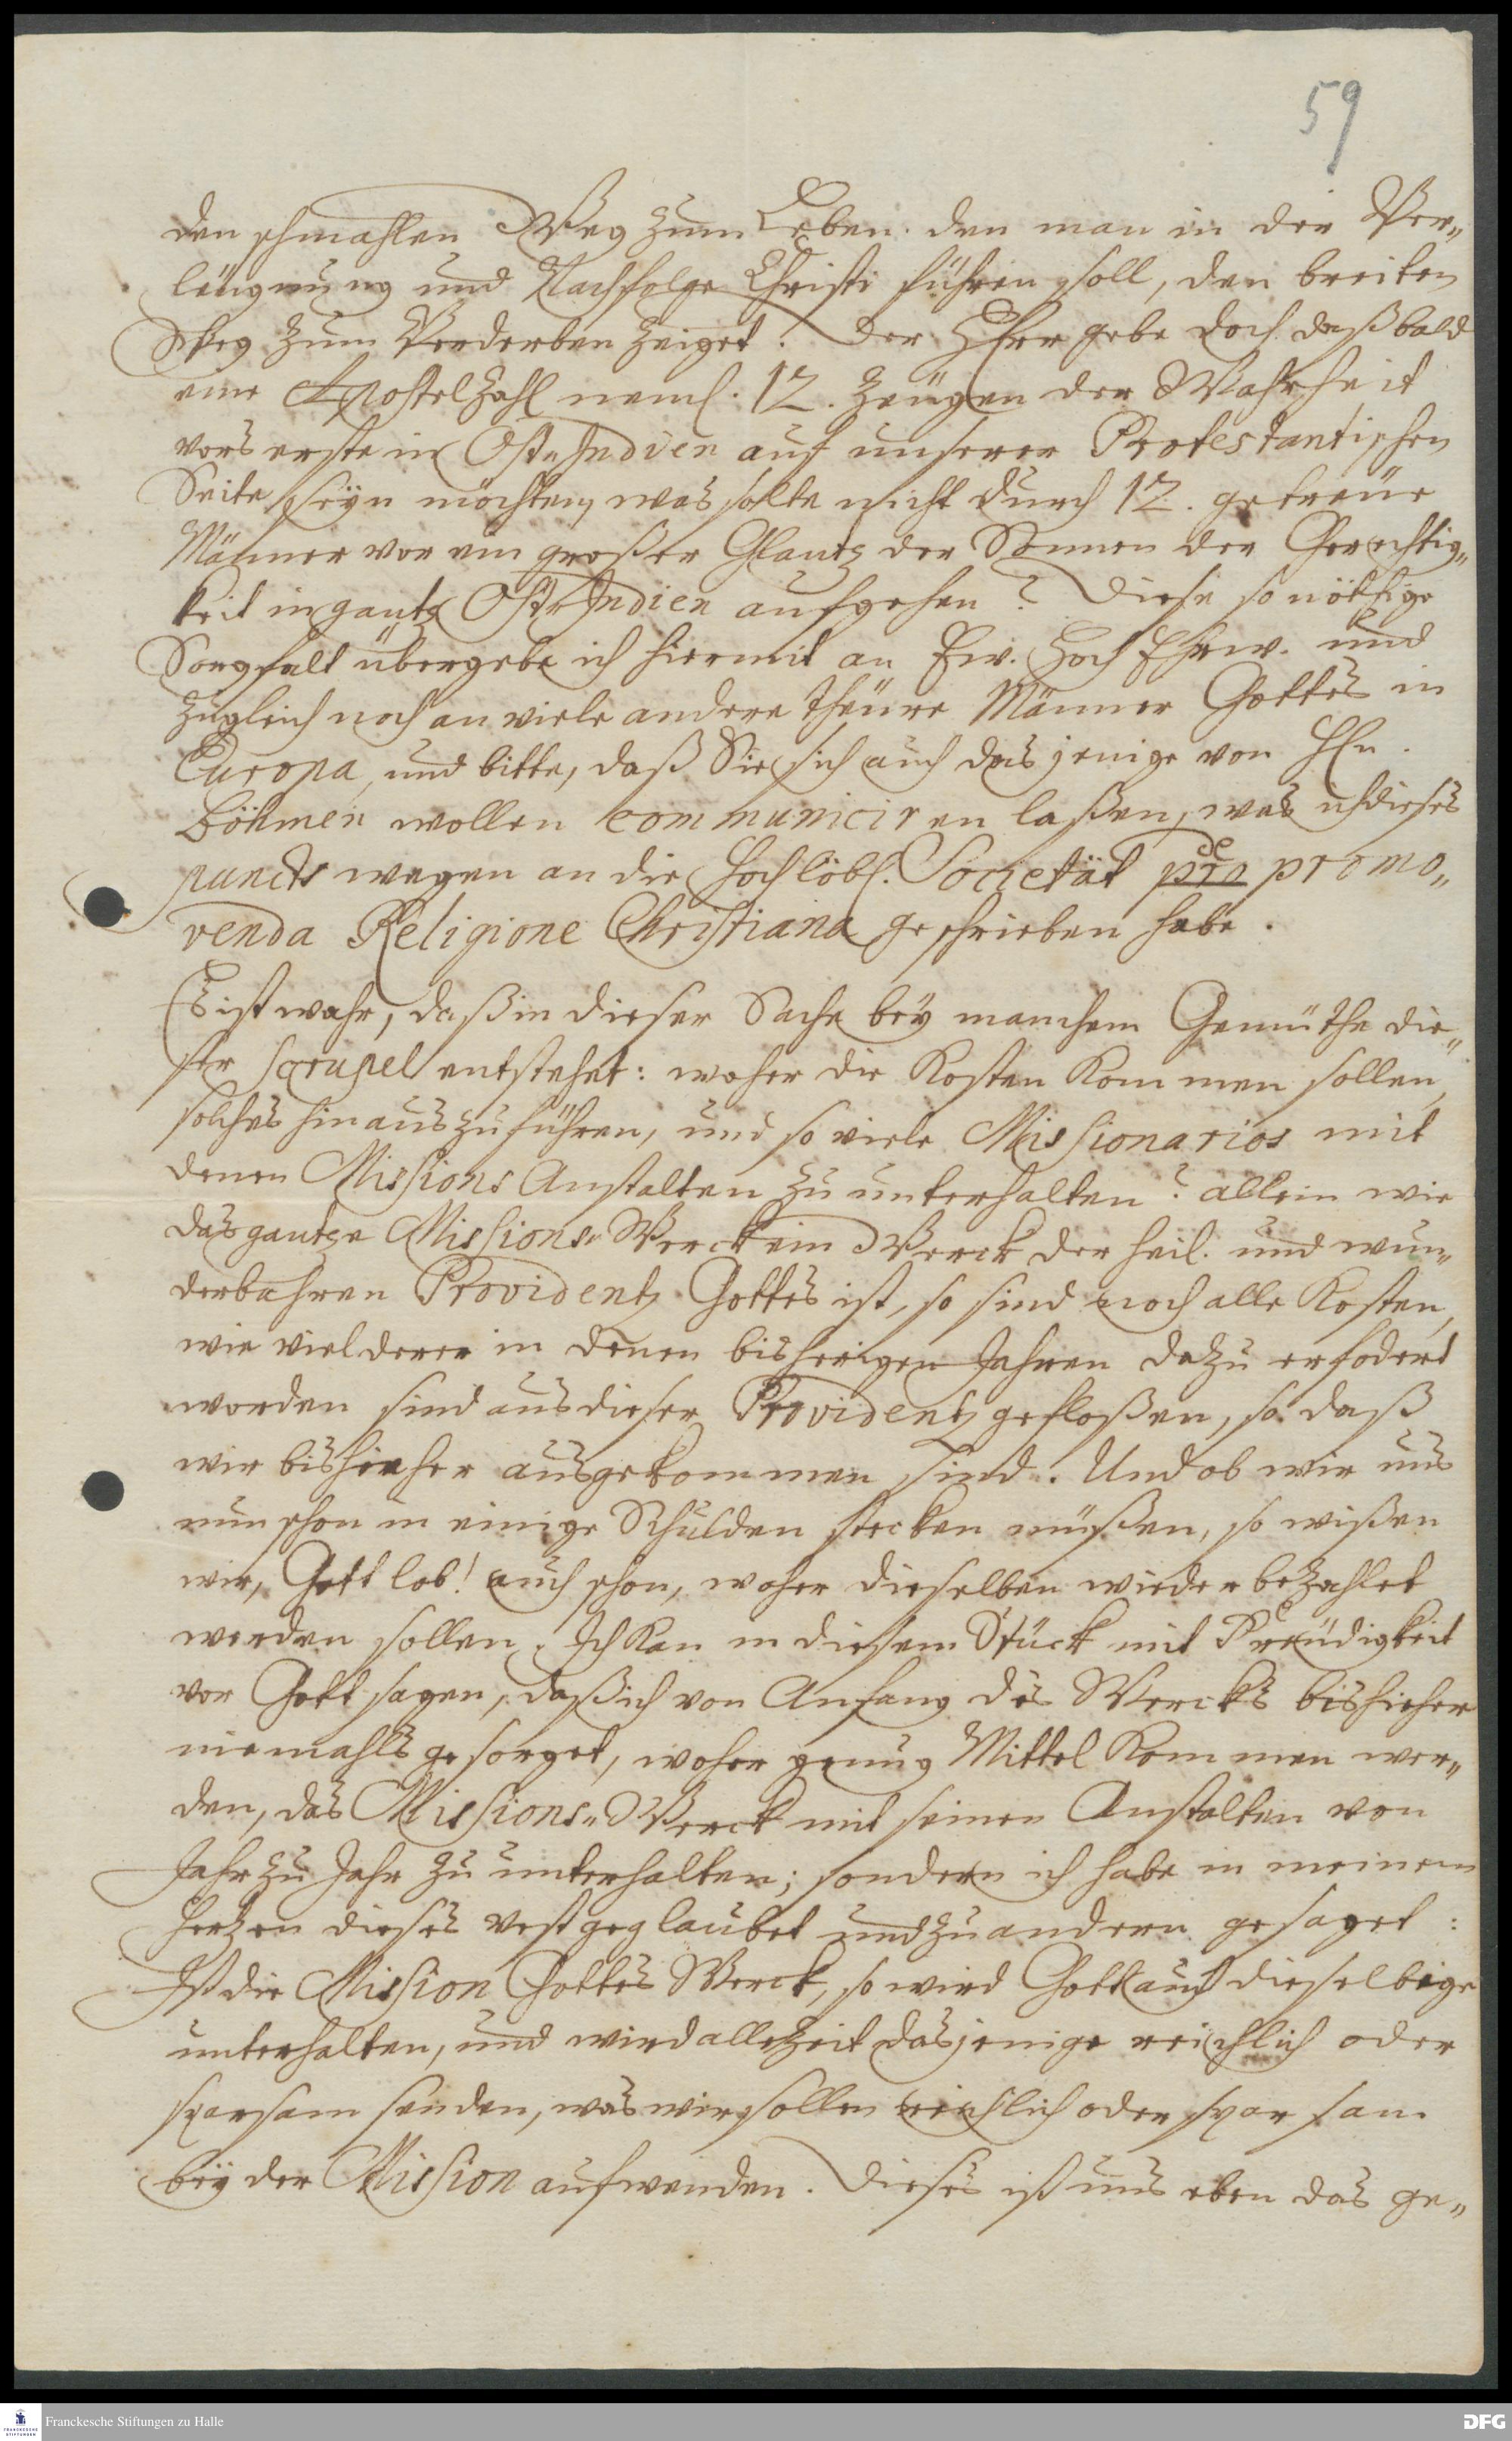 59
den schmahlen Weg zum Leben. den man in der Ver„
leügnung und Nachfolge Christi führen soll, den breiten
Weg zum Verderben zeiget. Der Herr gebe doch daß bald
eine Apostelzahl neml. 12. Zeügen der Wahrheit
vors erste in Ost„Indien auf unserer Protestantischen
Seite seyn möchten, was solte nicht durch 12. getreüe
Männer vor ein großer Glantz der Sonnen der Gerechtig„
keit in gantz Ost„Indien aufgehen? Diese so nöthige
Sorgfalt übergebe ich hiermit an Ew. HochEhrw. und
zugleich noch an viele andere theüre Männer Gottes in
Europa, und bitte, daß Sie sich auch dasjenige von Hn.
Böhmen wollen communiciren laßen, was ich dieses
puncts wegen an die Hochlöbl. Societät pro de promo„
venda Religione Christiana geschrieben habe.
Es ist wahr, daß in dieser Sache bey manchem Gemüthe die„
ser scrupel entstehet: woher die Kosten kommen sollen,
solches hinauszuführen, und so viele Missionarios mit
denen Missions Anstalten zu unterhalten? allein wie
das gantze Missions„Werck ein Werck der heil. und wun„
derbahren Providentz Gottes ist, so sind noch alle Kosten,
wie viel derer in denen bisherigen Jahren dazu erfodert
worden sind aus dieser Providentz gefloßen, so daß
wir bishieher ausgekommen sind. Und ob wir uns
nun schon in einige Schulden stecken müßen, so wißen
wir, Gott lob! auch schon, woher dieselben wieder bezahlet
werden sollen. Ich kan in diesem Stück mit Freüdigkeit
vor Gott sagen, daß ich von Anfang des Wercks bishieher
niemahls gesorget, woher genug Mittel kommen wer„
den, das Missions„Werck mit seinen Anstalten von
Jahr zu Jahr zu unterhalten; sondern ich habe in meinem
Hertzen dieses vest geglaubet und zu andern gesaget:
Ist die Mission Gottes Werck, so wird Gott auch dieselbige
unterhalten, und wird allezeit dasjenige reichlich oder
sparsam senden, was wir sollen reichlich oder sparsam
bey der Mission aufwenden. Dieses ist uns eben das ge„
Franckesche Stiftungen zu Halle
DFG